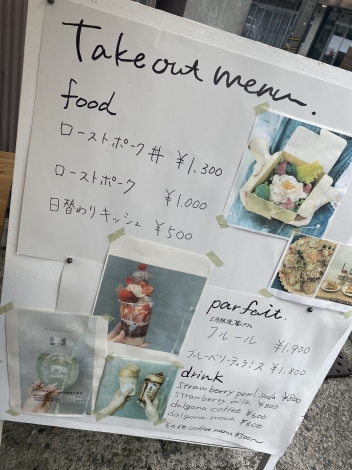 Take out menu.
food
ローストポーク丼 ¥1.300
ローストポーク ¥1.000
日替わりキッシュ ¥500
parfait.
フルール ¥1.900
ブルーベリーティラミス ¥1.800
drink
strawberry pearl soda ¥800
strawberry milk ¥800
dalgona coffee ¥600
dalgona moca ¥600
coffee menu ¥500~